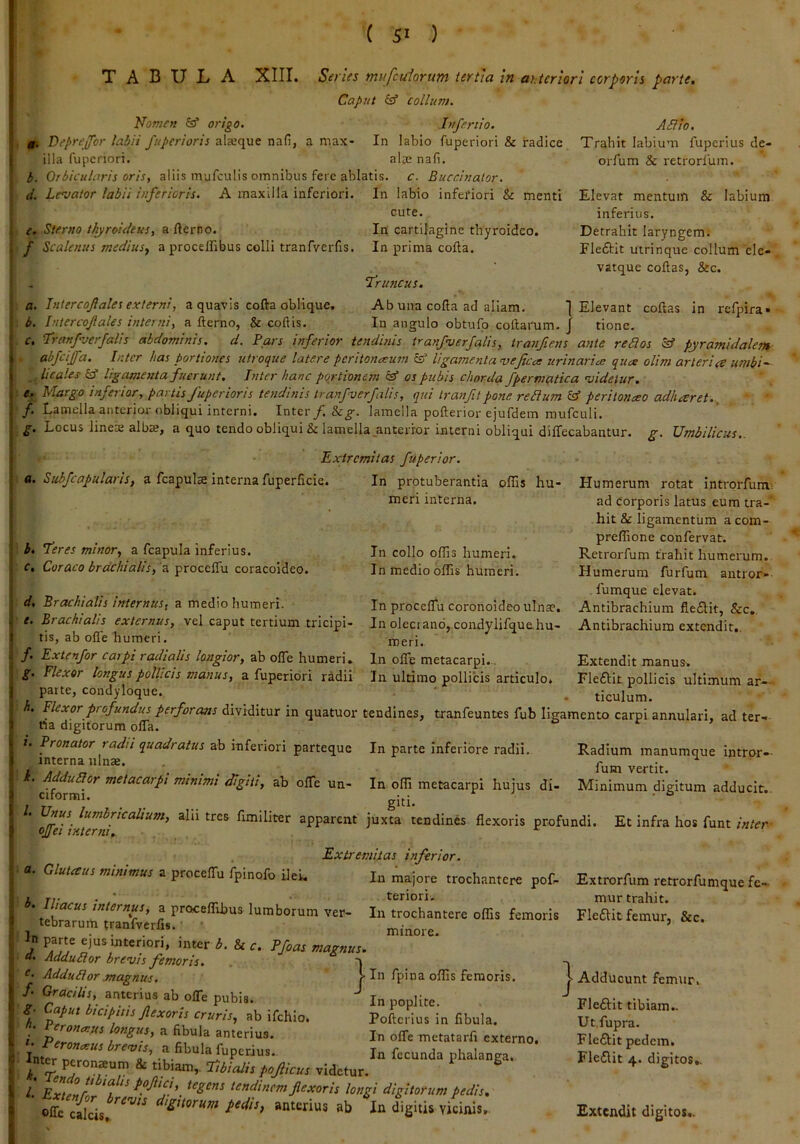 ( 51 )
TABULA XIII. Series musculorum tertia in anteriori corporis parte.
Caput & collum.
Nomen & origo. Insertio. Actio.
a. Depressor labii superioris alæque nasi, a maxilla superiori. In labio superiori & radice alæ nasi. Trahit labium superius deorsum & retrorsum.
b. Orbicularis oris, aliis musculis omnibus fere ablatis. c. Buccinator.
d. Levator labii inferioris. A maxilla inferiori. In labio inferiori & menti cute. Elevat mentum & labium inferius.
e. Sterno thyroideus, a sterno. In cartilagine thyroideo. Detrahit laryngem.
f Scalenus medius, a processibus colli transversis. In prima costa. Flectit utrinque collum elevatque costas, &c.
Truncus.
a. Intercostales externi, a quavis costa oblique. Ab una costa ad aliam. } Elevant costas in respira-
b. Intercostales interni, a sterno, & costis. In angulo obtuso costarum. } tione.
c. Transversalis abdominis. d. Pars inferior tendinis transversalis, transiens ante rectos & pyramidalem
abscissa. Inter has portiones utroque latere peritonæum & ligamenta vesicæ urinariæ quæ olim arteriæ umbi-
licales & ligamenta fuerunt. Inter hanc portionem & os pubis chorda spermatica videtur.
e. Margo inferior, partis superioris tendinis transversalis, qui transit pone rectum & peritonæo adhæret.
f. Lamella anterior obliqui interni. Inter f. &g. lamella posterior ejusdem musculi.
g. Locus lineæ albæ, a quo tendo obliqui & lamella anterior interni obliqui dissecabantur. g. Umbilicus.
Extremitas superior.
a. Subscapularis, a scapulæ interna superficie. In protuberantia ossis humeri interna. Humerum rotat introrsum ad corporis latus eum trahit & ligamentum a compressione conservat.
b. Teres minor, a scapula inferius. In collo ossis humeri. Retrorsum trahit humerum.
c. Coraco brachialis, a processu coracoideo. In medio ossis humeri. Humerum sursum antrorsumque elevat.
d. Brachialis internus, a medio humeri. In processu coronoideo ulnæ. Antibrachium flectit, &c.
e. Brachialis externus, vel caput tertium tricipitis, ab osse humeri. In olecrano, condylisque humeri. Antibrachium extendit.
f. Extensor carpi radialis longior, ab osse humeri. In osse metacarpi. Extendit manus.
g. Flexor longus pollicis manus, a superiori radii parte, condyloque. In ultimo pollicis articulo. Flectit pollicis ultimum articulum.
h. Flexor profundus perforans dividitur in quatuor tendines, transeuntes sub ligamento carpi annulari, ad ter-
tia digitorum ossa.
i. Pronator radii quadratus ab inferiori parteque interna ulnæ. In parte inferiore radii. Radium manumque introrsum vertit.
k. Adductor metacarpi minimi digiti, ab osse unciformi. In ossi metacarpi hujus digiti. Minimum digitum adducit.
l. Unus lumbricalium, alii tres similiter apparent juxta tendines flexoris profundi. Et infra hos sunt inter
ossei interni.
Extremitas inferior.
a. Glutæus minimus a processu spinoso ilei. In majore trochantere posteriori. Extrorsum retrorsumque femur trahit.
b. Iliacus internus, a processibus lumborum vertebrarum transversis. In trochantere ossis femoris minore. Flectit femur, &c.
In parte ejus interiori, inter b. & c. Psoas magnus.
d. Adductor brevis femoris. } In spina ossis femoris. } Adducunt femur.
e. Adductor magnus.
f. Gracilis, anterius ab osse pubis. In poplite. Flectit tibiam.
g. Caput bicipitis flexoris cruris, ab ischio. Posterius in fibula. Ut supra.
h. Peronæus longus, a fibula anterius. In osse metatarsi externo. Flectit pedem.
i. Peronæus brevis, a fibula superius. In secunda phalanga. Flectit 4. digitos.
Inter peronæum & tibiam, Tibialis posticus videtur.
k. Tendo tibialis postici, tegens tendinem flexoris longi digitorum pedis.
l. Extensor brevis digitorum pedis, anterius ab osse calcis. In digitis vicinis. Extendit digitos.